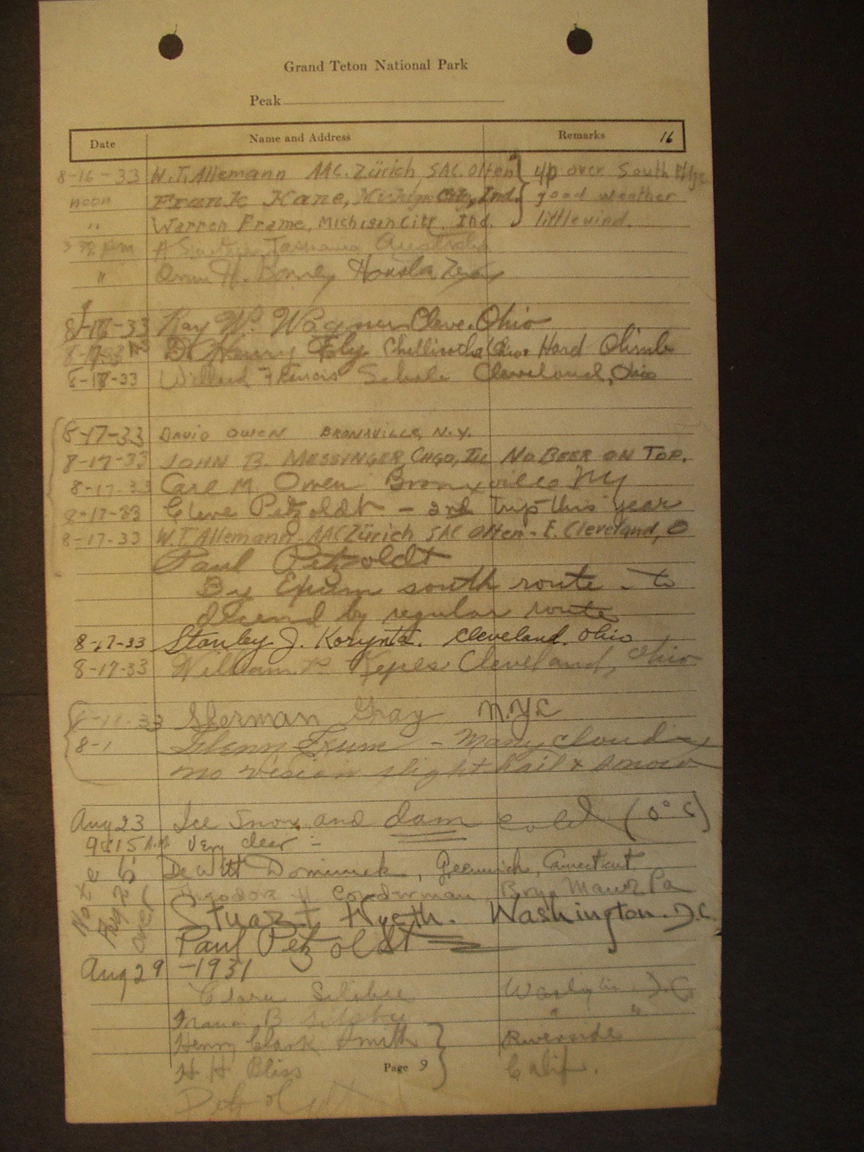 Grand Teton National Park
Peak
Date Name and Address Remarks 16
8-16-33 W.T. Allemann AAC. Zürich SAC. Olten up over South
noon Frank Kane, Michigan City, Ind. good weather
" Warren Frame, Michigan City, Ind. little wind.
pm Tasmania Australia
" H. Houston, Texas
8-18-33 Ray W. Wagner Cleve. Ohio
Dr. Henry Ely Chillicothe Hard Climb
8-18-33 Willard Francis Cleveland, Ohio
8-17-33 DAVID OWEN BRONXVILLE, N.Y.
8-17-33 JOHN B. MESSINGER, CHGO, ILL NO BEER ON TOP.
8-17-33 Carl M. Owen Bronxville NY
8-17-33 Eldon Petzoldt - 2nd trip this year
8-17-33 W.T. Allemann - AAC Zürich SAC Olten - E. Cleveland, O
Paul Petzoldt
By south route - to
decend by regular route
8-17-33 Stanley J. Cleveland. Ohio
8-17-33 William Cleveland, Ohio
33 Sherman Gray NYC
8-1 Glenn Exum - Many clouds
no vision slight hail & snow
Aug 23 Ice Snow and dam cold (0° C)
9:15 A.M. Very clear -
DeWitt Dominick, Greenwich, Connecticut
Theodore Bryn Mawr Pa
Stuart Washington. D.C.
Paul Petzoldt
Aug 29 - 1931
Clara D.C.
B " "
Henry Clark Smith Riverside
H H Bliss Calif.
Page 9